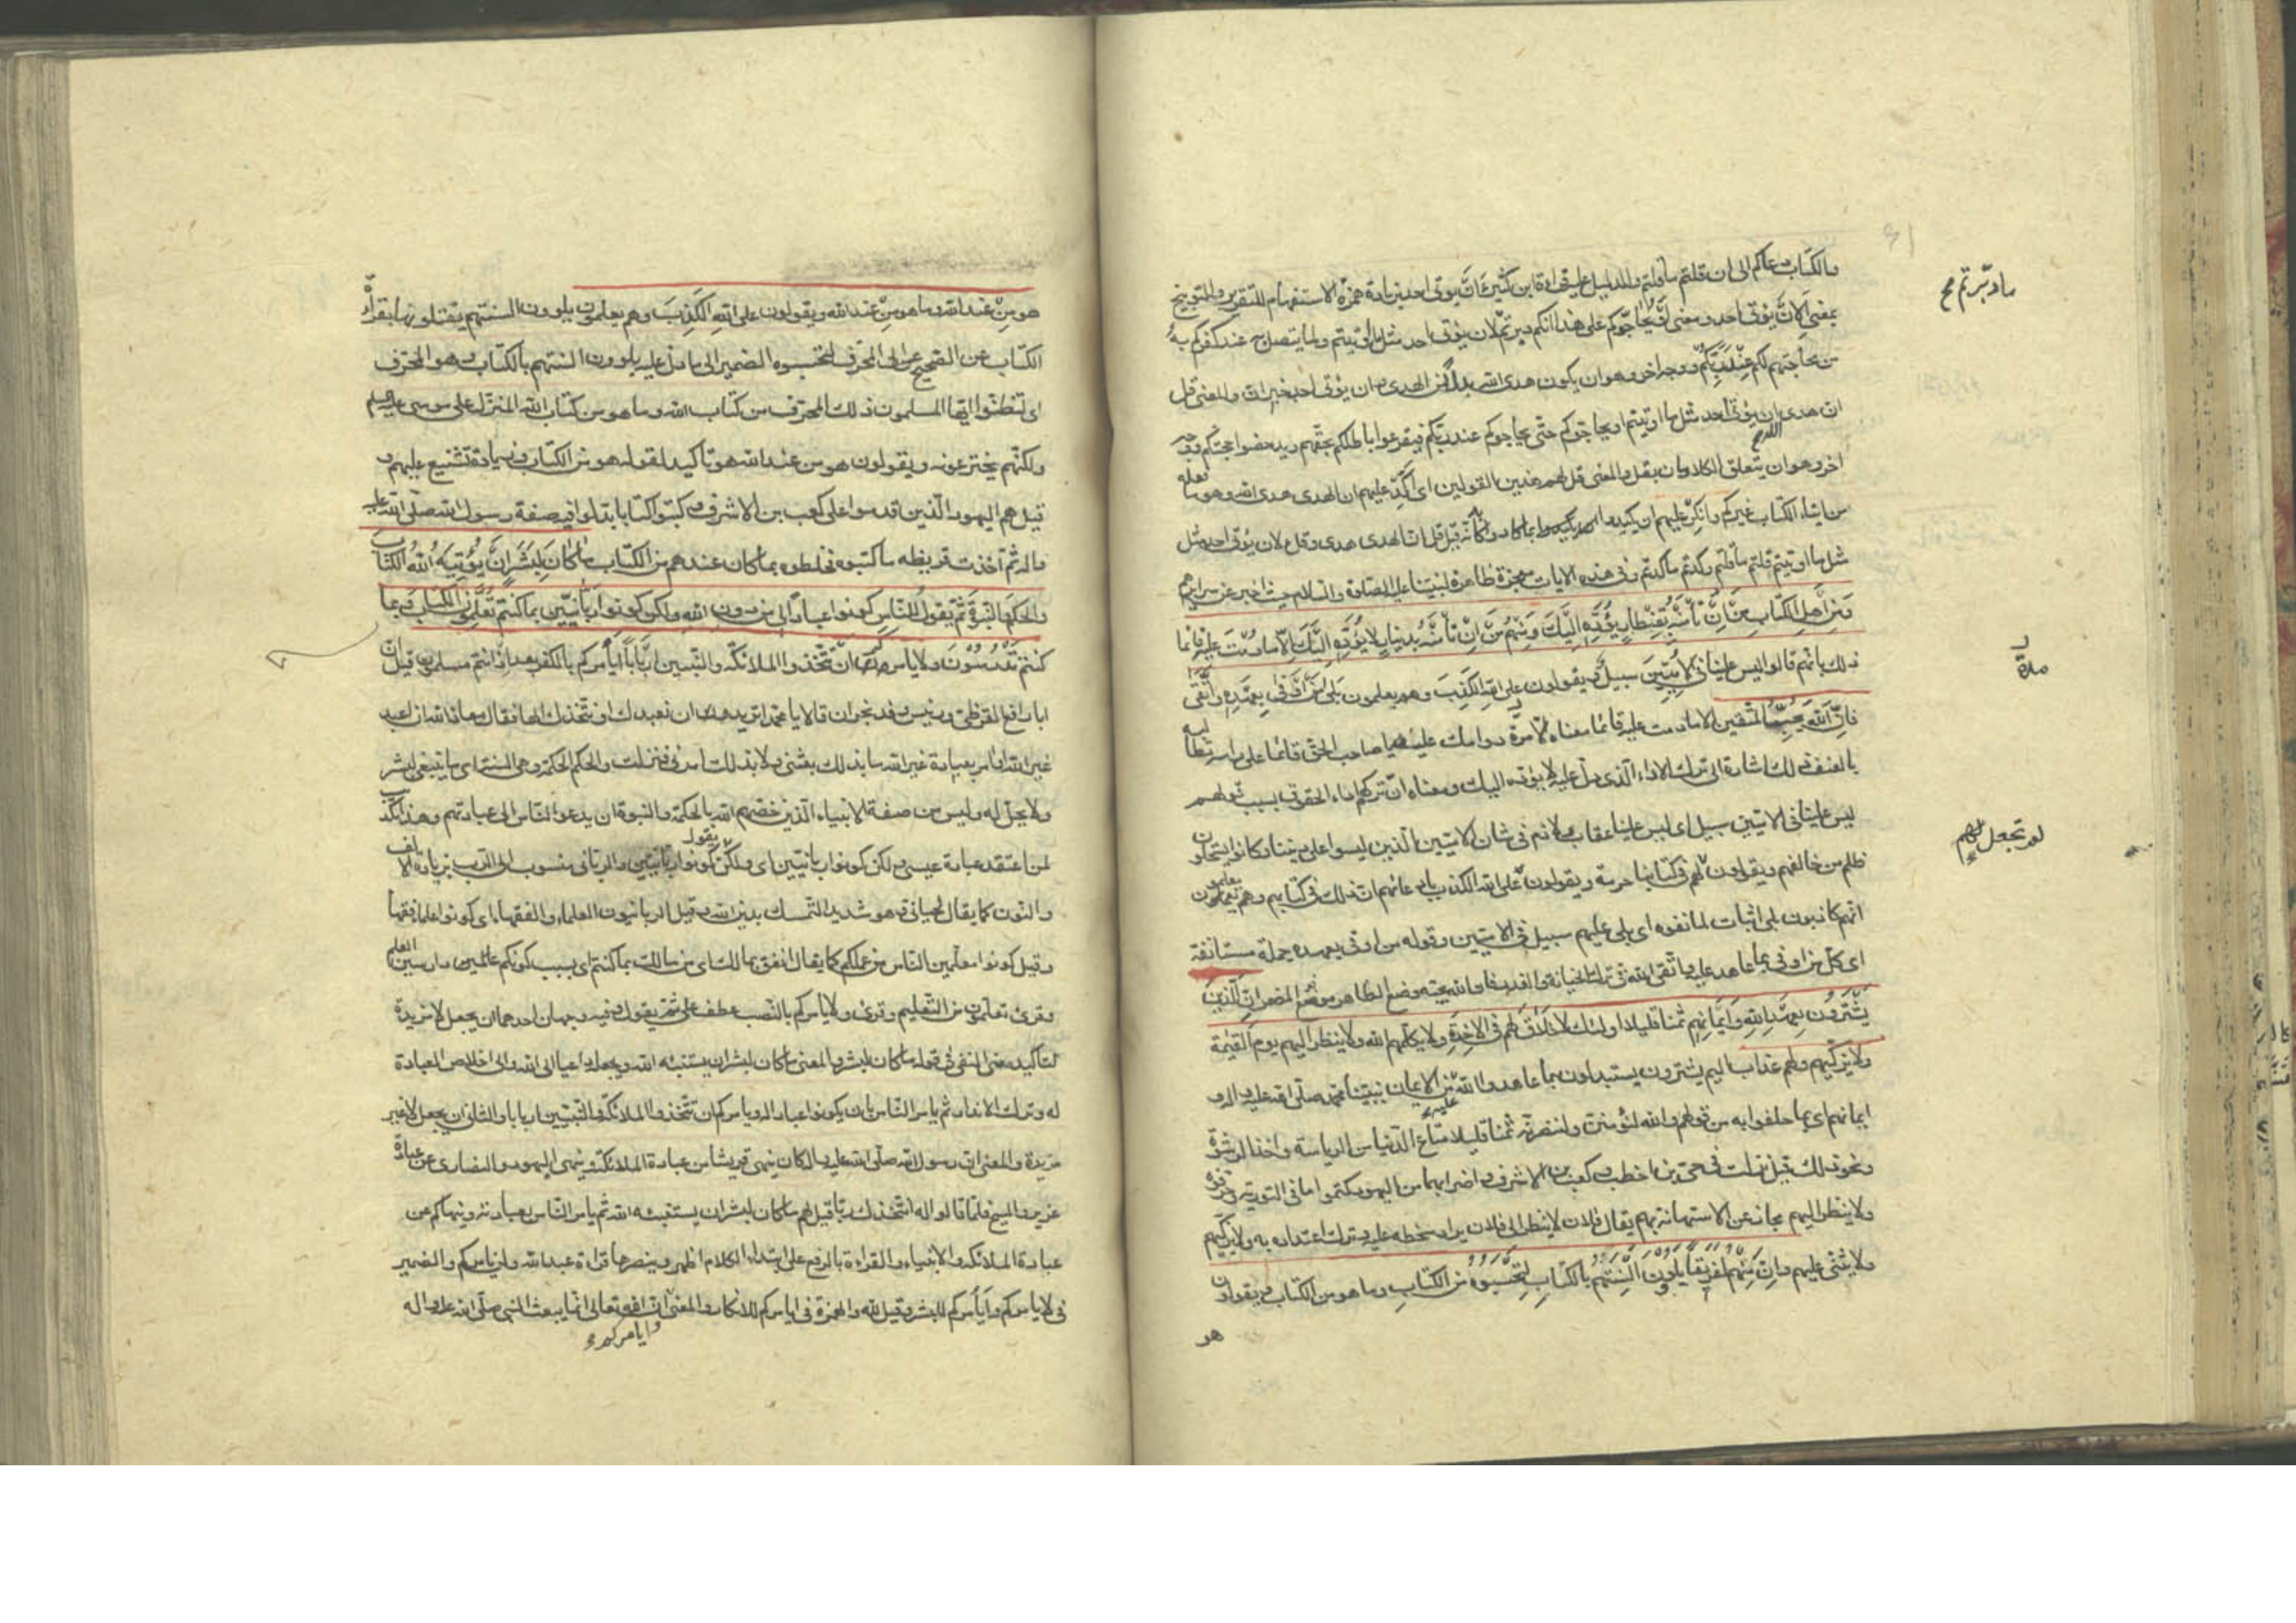 والكتاب دعاكم الى ان قلتم ما قلتم والدليل عليه قراءة ابن كثير ءان يؤتى احد بزيادة همزة الاستفهام للتقرير والتوبيخ
بمعنى الان يؤتى احد ومعنى او يحاجوكم على هذا انكم دبرتم لان يؤتى احد مثل ما اوتيتم ولما يتصل به عند كفركم به
من محاجتهم لكم عند ربكم ووجه اخر وهو ان يكون هدى الله بدلا من الهدى وان يؤتى احد خبر ان والمعنى قل
ان هدى الله ان يؤتى احد مثل ما اوتيتم او يحاجوكم حتى يحاجوكم عند ربكم فيقرعوا باطلكم بحقهم ويدحضوا حجتكم ووجه
اخر وهو ان يتعلق الكلامان بقل والمعنى قل لهم هذين القولين اى اكد عليهم ان الهدى هدى الله وهو ما فعله
من ايتاء الكتاب غيركم وانكر عليهم ان يكيدوا كانه قيل قل ان الهدى هدى الله وقل لان يؤتى احد مثل
مثل ما اوتيتم قلتم ما قلتم وكدتم ما كدتم وفى هذه الايات معجزة ظاهرة لنبينا عليه الصلوة والسلام حيث اخبر عن سرايرهم
ومن اهل الكتاب من ان تأمنه بقنطار يؤده اليك ومنهم من ان تأمنه بدينار لا يؤده اليك الا ما دمت عليه قائما
ذلك بانهم قالوا ليس علينا فى الاميين سبيل ويقولون على الله الكذب وهم يعلمون بلى من اوفى بعهده واتقى
فان الله يحب المتقين الا ما دمت عليه قائما معناه الا مدة دوامك عليه يا صاحب الحق قائما على راسه مطالبا
بالعنف ذلك اشارة الى ترك الاداء الذى دل عليه لا يؤده اليك ومعناه ان تركهم اداء الحقوق بسبب قولهم
ليس علينا فى الاميين سبيل اى ليس علينا عقاب ولا ذم فى شان الاميين الذين ليسوا على ديننا وكانوا يستحلون
ظلم من خالفهم ويقولون لم تجعل لهم فى كتابنا حرمة ويقولون على الله الكذب بادعائهم ان ذلك فى كتابهم وهم يعلمون
انهم كاذبون بلى اثبات لما نفوه اى بلى عليهم سبيل فى الاميين وقوله من اوفى بعهده جملة مستانفة
اى كل من اوفى بما عاهد عليه واتقى الله فى ترك الخيانة والغدر فان الله يحبه وضع الظاهر موضع المضمر ان الذين
يشترون بعهد الله وايمانهم ثمنا قليلا اولئك لا خلاق لهم فى الاخرة ولا يكلمهم الله ولا ينظر اليهم يوم القيمة
ولا يزكيهم ولهم عذاب اليم يشترون يستبدلون بما عاهدوا الله عليه من الايمان بنبينا محمد صلى الله عليه واله و
ايمانهم اى بما حلفوا به من قولهم والله لنؤمنن به ولننصرنه ثمنا قليلا متاع الدنيا من الرياسة واخذ الرشوة
ونحو ذلك قيل نزلت فى حيى بن اخطب وكعب بن الاشرف واضرابهما من اليهود كتموا ما فى التورية وحرفوه
ولا ينظر اليهم مجاز عن الاستهانة بهم يقال فلان لا ينظر الى فلان يراد سخطه عليه وترك اعتداده به ولا يزكيهم
ولا يثنى عليهم وان منهم لفريقا يلوون السنتهم بالكتاب لتحسبوه من الكتاب وما هو من الكتاب ويقولون
هو
ما دبرتم مح
مدة
لم تجعل لهم
هو من عند الله وما هو من عند الله ويقولون على الله الكذب وهم يعلمون يلوون السنتهم يفتلونها بقراءة
الكتاب عن الصحيح الى المحرف لتحسبوه الضمير الى ما دل عليه يلوون السنتهم بالكتاب وهو المحرف
اى لتظنوا ايها المسلمون ذلك المحرف من كتاب الله وما هو من كتاب الله المنزل على موسى عليه السلم
ولكنهم يخترعونه ويقولون هو من عند الله هو تاكيد لقوله هو من الكتاب وزيادة تشنيع عليهم و
قيل هم اليهود الذين قدموا على كعب بن الاشرف وكتبوا كتابا بدلوا فيه صفة رسول الله صلى الله عليه
واله ثم اخذت قريظه ما كتبوه فخلطوه بما كان عندهم من الكتاب ما كان لبشر ان يؤتيه الله الكتاب
والحكم والنبوة ثم يقول للناس كونوا عبادا لى من دون الله ولكن كونوا ربانيين بما كنتم تعلمون الكتاب وبما
كنتم تدرسون ولا يامركم ان تتخذوا الملائكة والنبيين اربابا ايأمركم بالكفر بعد اذ انتم مسلمون قيل ان
ابا رافع القرظى ورئيس وفد نجران قالا يا محمد اتريد ان نعبدك او نتخذك الها فقال معاذ الله ان اعبد
غير الله او امر بعبادة غير الله ما بذلك بعثنى ولا بذلك امرنى فنزلت والحكم الحكمة وهى السنة اى ما ينبغى لبشر
ولا يحل له وليس من صفة الانبياء الذين خصهم الله بالحكمة والنبوة ان يدعو الناس الى عبادتهم وهذا تكذيب
لمن اعتقد عبادة عيسى ولكن كونوا ربانيين اى ولكن يقول كونوا ربانيين والربانى منسوب الى الرب بزيادة الالف
والنون كما يقال لحيانى وهو شديد التمسك بدين الله وقيل الربانيون العلماء والفقهاء اى كونوا علماء فقهاء
وقيل كونوا معلمين الناس من علمكم كما يقال انفق بمالك اى من مالك بما كنتم اى بسبب كونكم عالمين ودارسين العلم
وقرئ تعلمون من التعليم وقرئ ولا يامركم بالنصب عطف على ثم يقول وفيه وجهان احدهما ان يجعل لا مزيدة
لتاكيد معنى النفى فى قوله ما كان لبشر والمعنى ما كان لبشر ان يستنبئه الله ويجعله داعيا الى الله والى اخلاص العبادة
له وترك الانداد ثم يامر الناس بان يكونوا عبادا له ويامركم ان تتخذوا الملائكة والنبيين اربابا والثانى ان يجعل لا غير
مزيدة والمعنى ان رسول الله صلى الله عليه واله كان ينهى قريشا من عبادة الملائكة وينهى اليهود والنصارى عن عبادة
عزير والمسيح فلما قالوا له انتخذك ربا قيل لهم ما كان لبشر ان يستنبئه الله ثم يامر الناس بعبادته وينهاكم عن
عبادة الملائكة والانبياء والقراءة بالرفع على ابتداء الكلام اظهر وينصرها قراءة عبد الله ولن يامركم والضمير
فى لا يامركم وايأمركم للبشر وقيل لله والهمزة فى ايامركم للانكار والمعنى ان الله تعالى انما يبعث النبى صلى الله عليه واله
وايامركم